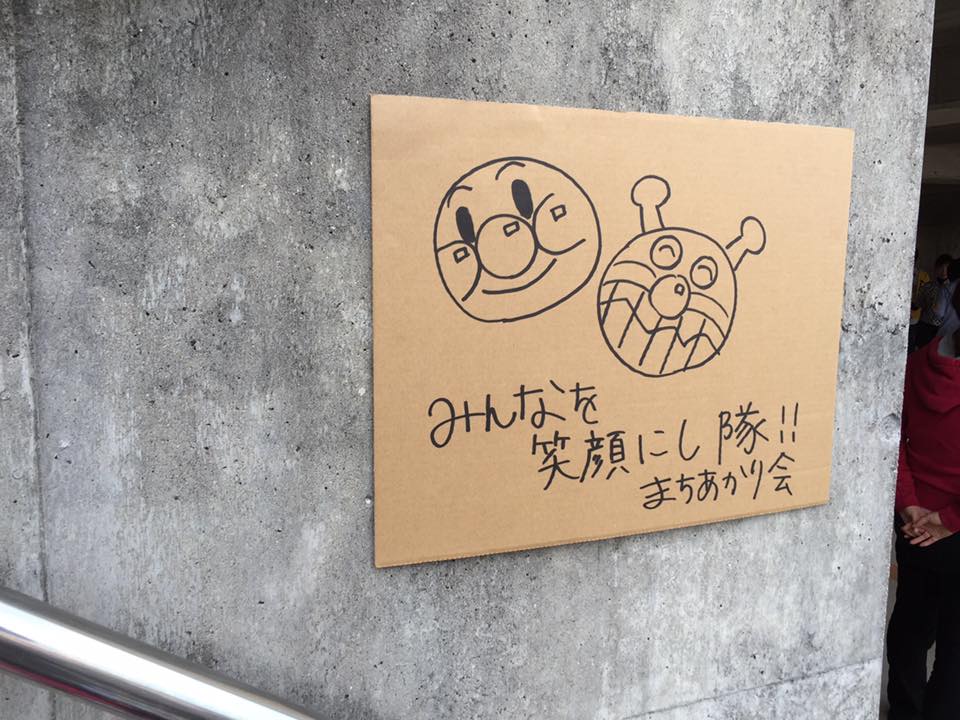 みんなを
笑顔にし隊!!
まちあかり会